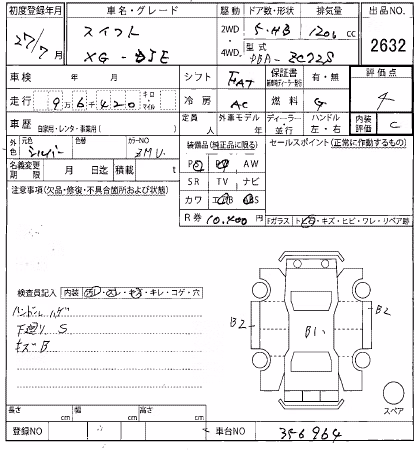 初度登録年月 車名・グレード 駆動 ドア数・形状 排気量 出品NO.
27/7月 スイフト 2WD 5・HB 1200 cc 2632
XG-DJE 4WD 型式 DBA-ZC72S
車検 年 月 シフト FAT 保証書 有・無 評価点
走行 9万6千420 キロ マイル 冷房 AC 燃料 G 4
車歴 自家用・レンタ・事業用( ) 定員 人 外車モデル 年 ディーラー・並行 ハンドル 左・右 内装評価 C
外色 元色 シルバー 色替 カラーNO ZMU 装備品(純正品に限る) セールスポイント(正常に作動するもの)
名義変更期限 月 日迄 積載 t PS PW AW
注意事項(欠品・修復・不具合箇所および状態) SR TV ナビ
カワ エアB ABS
R券 10,400 円 Fガラス トビ石・キズ・ヒビ・ワレ・リペア跡
検査員記入 内装 汚レ・スレ・キズ・キレ・コゲ・穴
ハンドルハゲ
下廻り S
キズ B
B2 B1 B2
スペア
長さ cm 幅 cm 高さ cm
登録NO 車台NO 356964